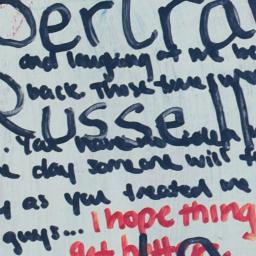 Bertra
and laughing at me be
back. Those times were
Russell
. You have no idea h
e day someone will t
y as you treated me
guys... I hope thing
get better.